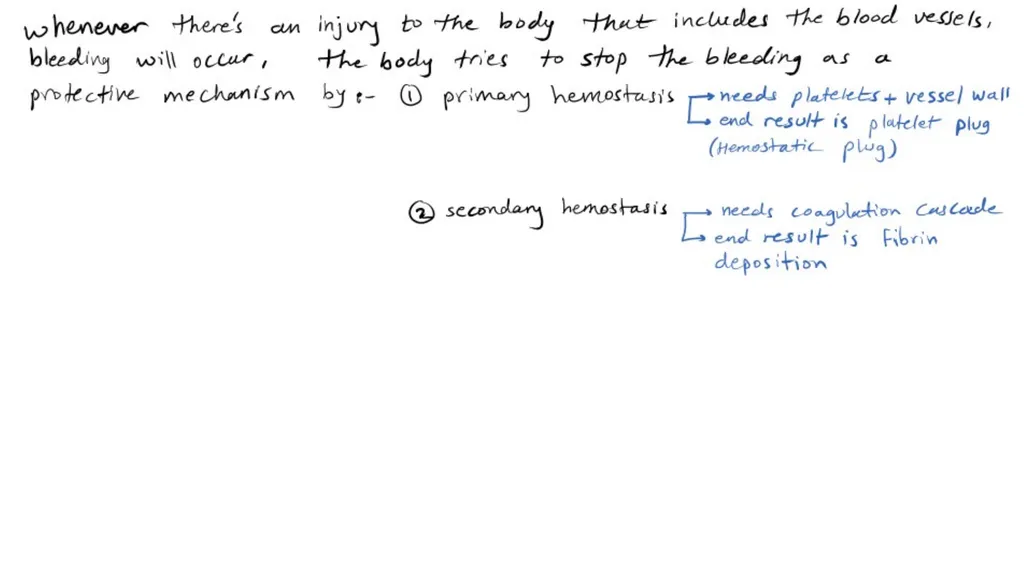 whenever there's an injury to the body that includes the blood vessels,
bleeding will occur, the body tries to stop the bleeding as a
protective mechanism by:- ① primary hemostasis → needs platelets + vessel wall
→ end result is platelet plug
(Hemostatic plug)
② secondary hemostasis → needs coagulation cascade
→ end result is Fibrin
deposition